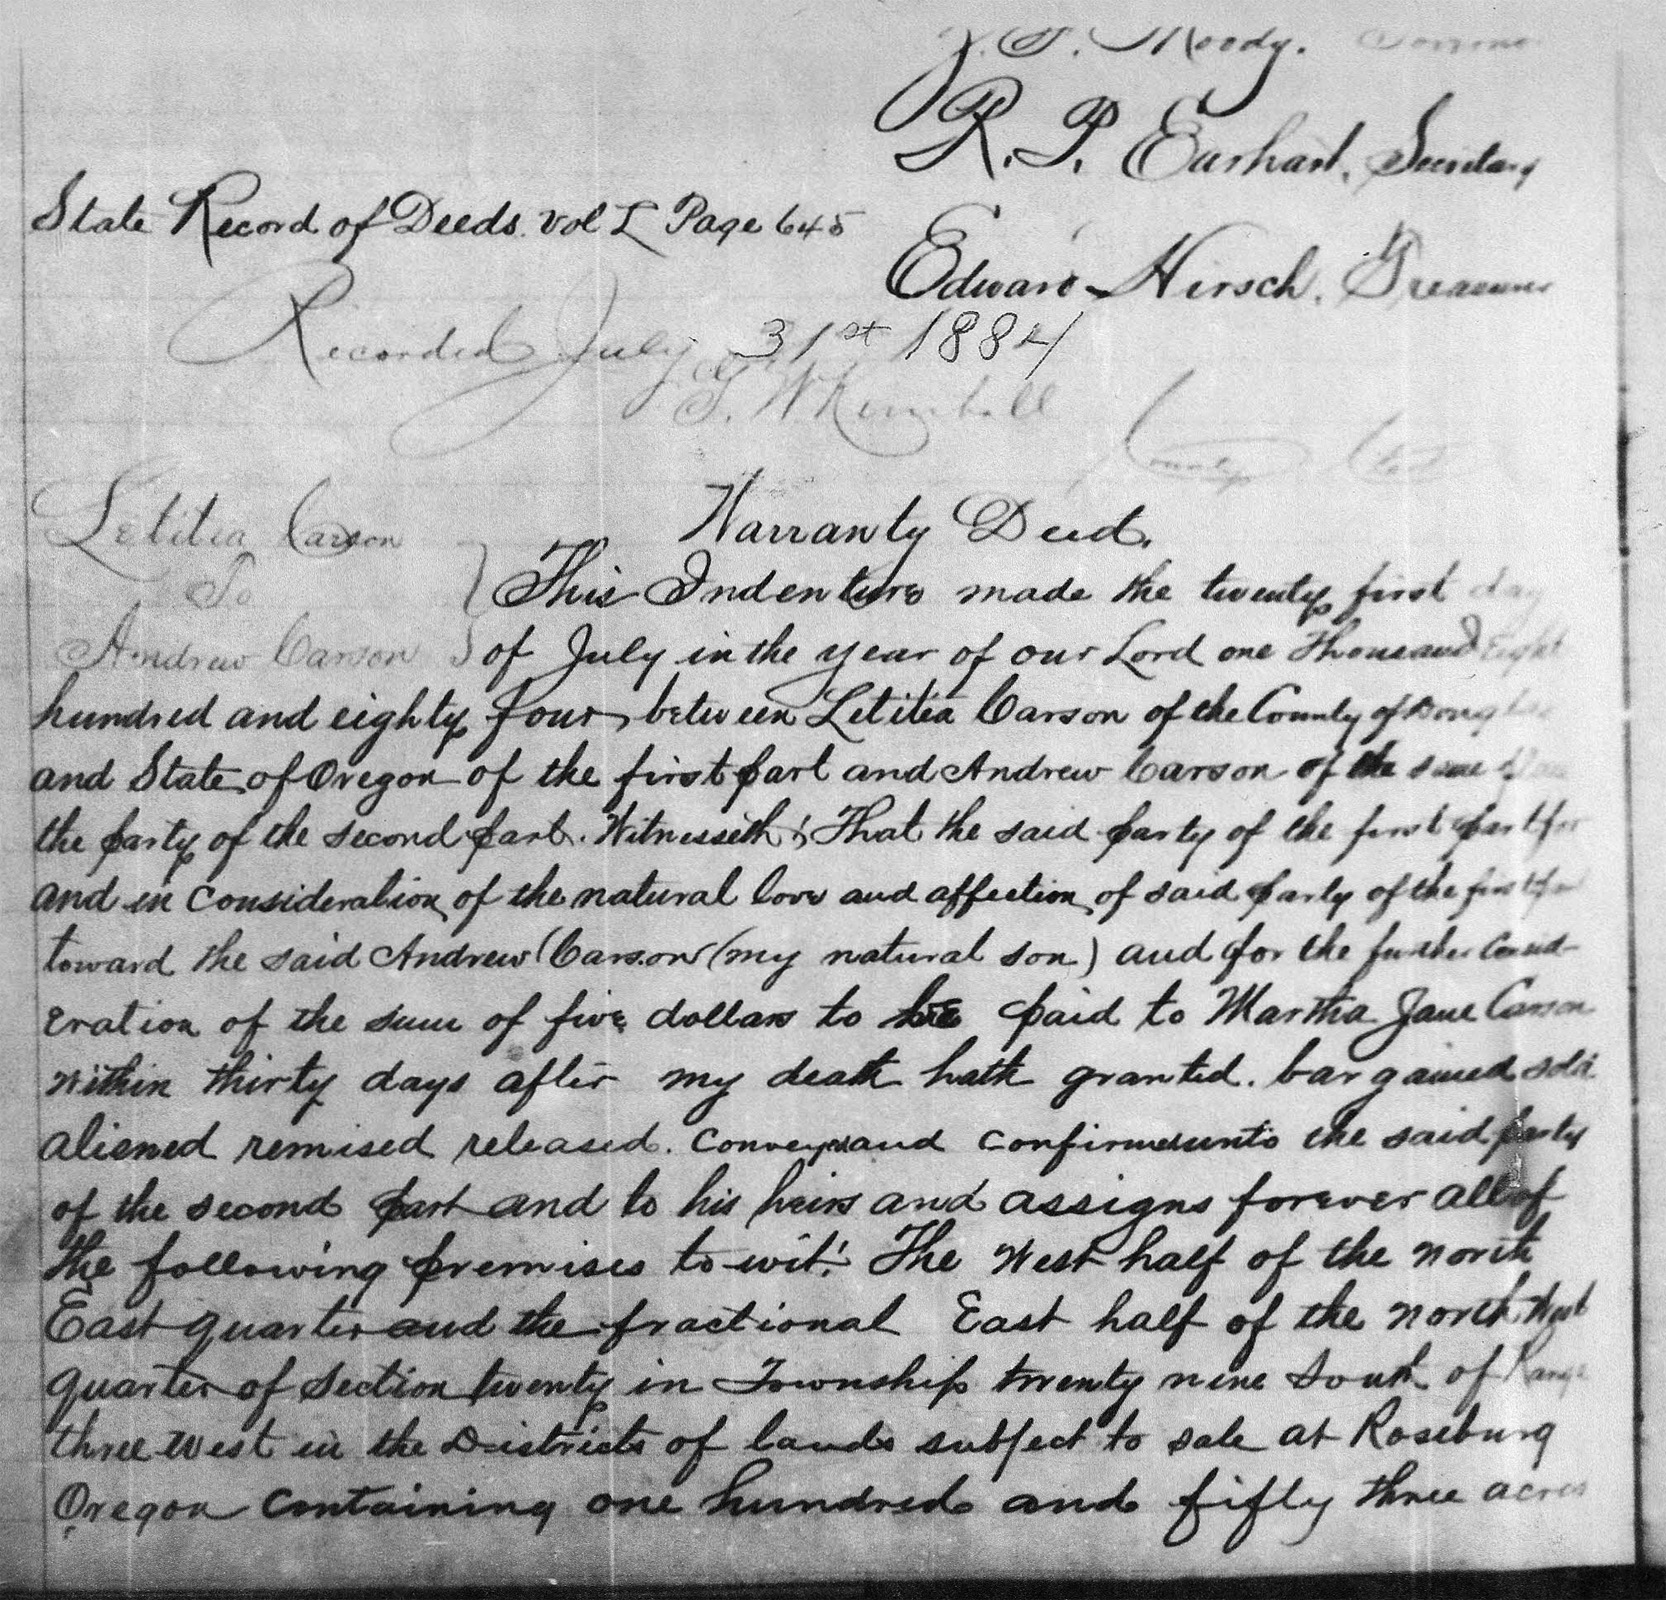 Z. F. Moody.
R. P. Earhart, Secretary
State Record of Deeds. Vol L Page 645
Edward Hirsch. Treasurer
Recorded July 31st 1884
G. W Kimball
County Clerk
Warranty Deed.
Letitia Carson
To
Andrew Carson
This Indenture made the twenty first day
of July in the year of our Lord one Thousand Eight
hundred and eighty four, between Letitia Carson of the County of Douglas
and State of Oregon of the first part and Andrew Carson of the same
the party of the second part. Witnesseth; That the said party of the first part for
and in consideration of the natural love and affection of said party of the first part
toward the said Andrew Carson (my natural son) and for the further Consid-
eration of the sum of five dollars to be paid to Martha Jane Carson
within thirty days after my death hath granted. bargained sold
aliened remised released. conveys and confirms unto the said party
of the second part and to his heirs and assigns forever all of
the following premises to wit: The West half of the North
East quarter and the fractional East half of the North West
quarter of Section twenty in Township twenty nine South of Range
three West in the Districts of lands subject to sale at Roseburg
Oregon Containing one hundred and fifty three acres